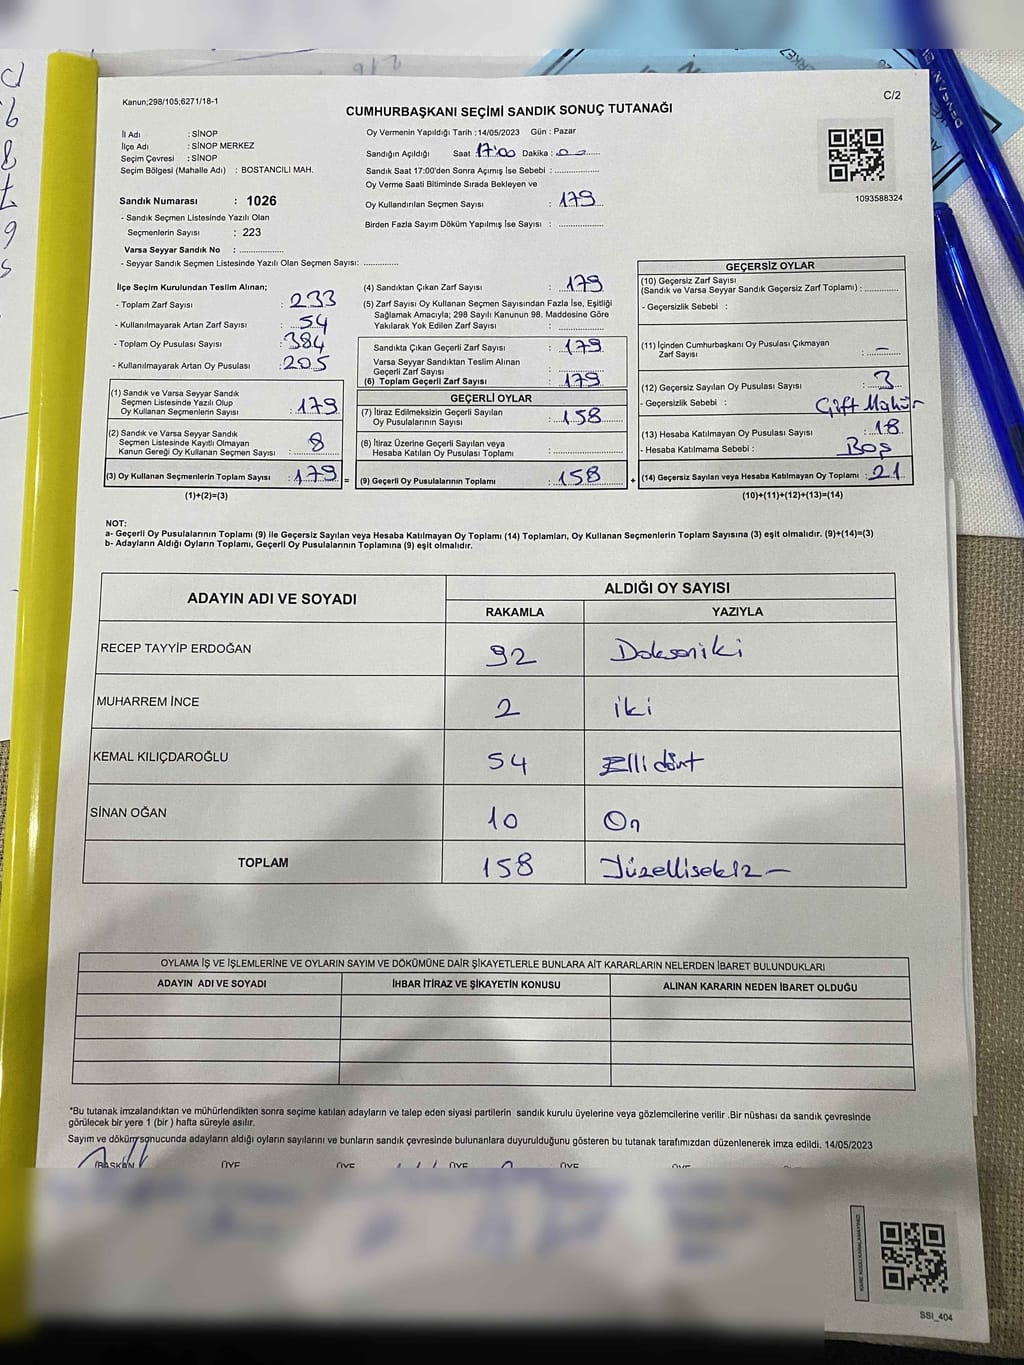 Kanun;298/105;6271/18-1
C/2
CUMHURBAŞKANI SEÇİMİ SANDIK SONUÇ TUTANAĞI
İl Adı : SİNOP
İlçe Adı : SİNOP MERKEZ
Seçim Çevresi : SİNOP
Seçim Bölgesi (Mahalle Adı) : BOSTANCILI MAH.
Sandık Numarası : 1026
- Sandık Seçmen Listesinde Yazılı Olan
Seçmenlerin Sayısı : 223
Varsa Seyyar Sandık No : ................
- Seyyar Sandık Seçmen Listesinde Yazılı Olan Seçmen Sayısı: ............
Oy Vermenin Yapıldığı Tarih :14/05/2023 Gün : Pazar
Sandığın Açıldığı Saat 17:00 Dakika :
Sandık Saat 17:00'den Sonra Açımış İse Sebebi : ................
Oy Verme Saati Bitiminde Sırada Bekleyen ve
Oy Kullandırılan Seçmen Sayısı : 179
Birden Fazla Sayım Döküm Yapılmış İse Sayısı : ................
1093588324
İlçe Seçim Kurulundan Teslim Alınan;
- Toplam Zarf Sayısı : 233
- Kullanılmayarak Artan Zarf Sayısı : 54
- Toplam Oy Pusulası Sayısı : 384
- Kullanılmayarak Artan Oy Pusulası : 205
(1) Sandık ve Varsa Seyyar Sandık
Seçmen Listesinde Yazılı Olup
Oy Kullanan Seçmenlerin Sayısı : 179
(2) Sandık ve Varsa Seyyar Sandık
Seçmen Listesinde Kayıtlı Olmayan
Kanun Gereği Oy Kullanan Seçmen Sayısı : 8
(3) Oy Kullanan Seçmenlerin Toplam Sayısı : 179 =
(1)+(2)=(3)
(4) Sandıktan Çıkan Zarf Sayısı : 179
(5) Zarf Sayısı Oy Kullanan Seçmen Sayısından Fazla İse, Eşitliği
Sağlamak Amacıyla; 298 Sayılı Kanunun 98. Maddesine Göre
Yakılarak Yok Edilen Zarf Sayısı : ................
Sandıkta Çıkan Geçerli Zarf Sayısı : 179
Varsa Seyyar Sandıktan Teslim Alınan
Geçerli Zarf Sayısı : ................
(6) Toplam Geçerli Zarf Sayısı : 179
GEÇERLİ OYLAR
(7) İtiraz Edilmeksizin Geçerli Sayılan
Oy Pusulalarının Sayısı : 158
(8) İtiraz Üzerine Geçerli Sayılan veya
Hesaba Katılan Oy Pusulası Toplamı : ................
(9) Geçerli Oy Pusulalarının Toplamı : 158 +
GEÇERSİZ OYLAR
(10) Geçersiz Zarf Sayısı
(Sandık ve Varsa Seyyar Sandık Geçersiz Zarf Toplamı) : ............
- Geçersizlik Sebebi :
(11) İçinden Cumhurbaşkanı Oy Pusulası Çıkmayan
Zarf Sayısı : –
(12) Geçersiz Sayılan Oy Pusulası Sayısı : 3
- Geçersizlik Sebebi : Çift Mühür
(13) Hesaba Katılmayan Oy Pusulası Sayısı : 18
- Hesaba Katılmama Sebebi : Boş
(14) Geçersiz Sayılan veya Hesaba Katılmayan Oy Toplamı : 21
(10)+(11)+(12)+(13)=(14)
NOT:
a- Geçerli Oy Pusulalarının Toplamı (9) ile Geçersiz Sayılan veya Hesaba Katılmayan Oy Toplamı (14) Toplamları, Oy Kullanan Seçmenlerin Toplam Sayısına (3) eşit olmalıdır. (9)+(14)=(3)
b- Adayların Aldığı Oyların Toplamı, Geçerli Oy Pusulalarının Toplamına (9) eşit olmalıdır.
ADAYIN ADI VE SOYADI ALDIĞI OY SAYISI
RAKAMLA YAZIYLA
RECEP TAYYİP ERDOĞAN 92 Doksaniki
MUHARREM İNCE 2 iki
KEMAL KILIÇDAROĞLU 54 Ellidört
SİNAN OĞAN 10 On
TOPLAM 158 Yüzellisekiz –
OYLAMA İŞ VE İŞLEMLERİNE VE OYLARIN SAYIM VE DÖKÜMÜNE DAİR ŞİKAYETLERLE BUNLARA AİT KARARLARIN NELERDEN İBARET BULUNDUKLARI
ADAYIN ADI VE SOYADI İHBAR İTİRAZ VE ŞİKAYETİN KONUSU ALINAN KARARIN NEDEN İBARET OLDUĞU
*Bu tutanak imzalandıktan ve mühürlendikten sonra seçime katılan adayların ve talep eden siyasi partilerin sandık kurulu üyelerine veya gözlemcilerine verilir .Bir nüshası da sandık çevresinde
görülecek bir yere 1 (bir ) hafta süreyle asılır.
Sayım ve döküm sonucunda adayların aldığı oyların sayılarını ve bunların sandık çevresinde bulunanlara duyurulduğunu gösteren bu tutanak tarafımızdan düzenlenerek imza edildi. 14/05/2023
BAŞKAN ÜYE ÜYE ÜYE ÜYE ÜYE
SSI_404